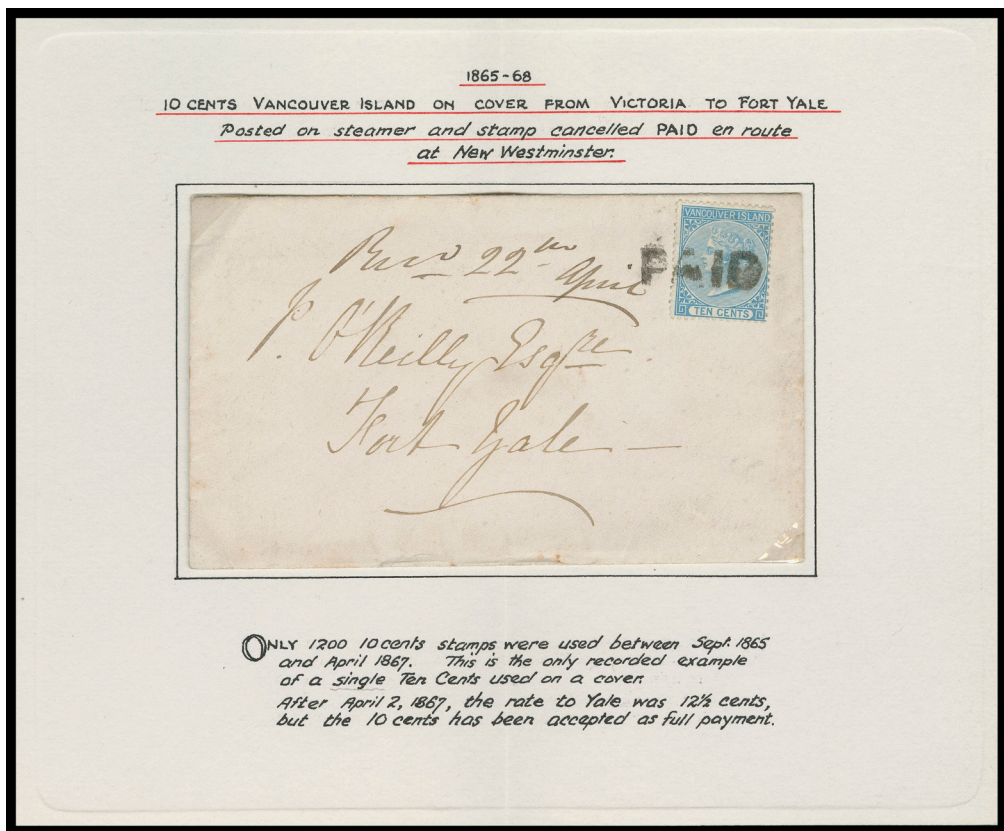 1865-68
10 CENTS VANCOUVER ISLAND ON COVER FROM VICTORIA TO FORT YALE
Posted on steamer and stamp cancelled PAID en route
at New Westminster.
VANCOUVER ISLAND
PAID
TEN CENTS
22nd
April
P. O'Reilly Esqre
Fort Yale
ONLY 1200 10 cents stamps were used between Sept. 1865
and April 1867. This is the only recorded example
of a single Ten Cents used on a cover.
After April 2, 1867, the rate to Yale was 12½ cents,
but the 10 cents has been accepted as full payment.